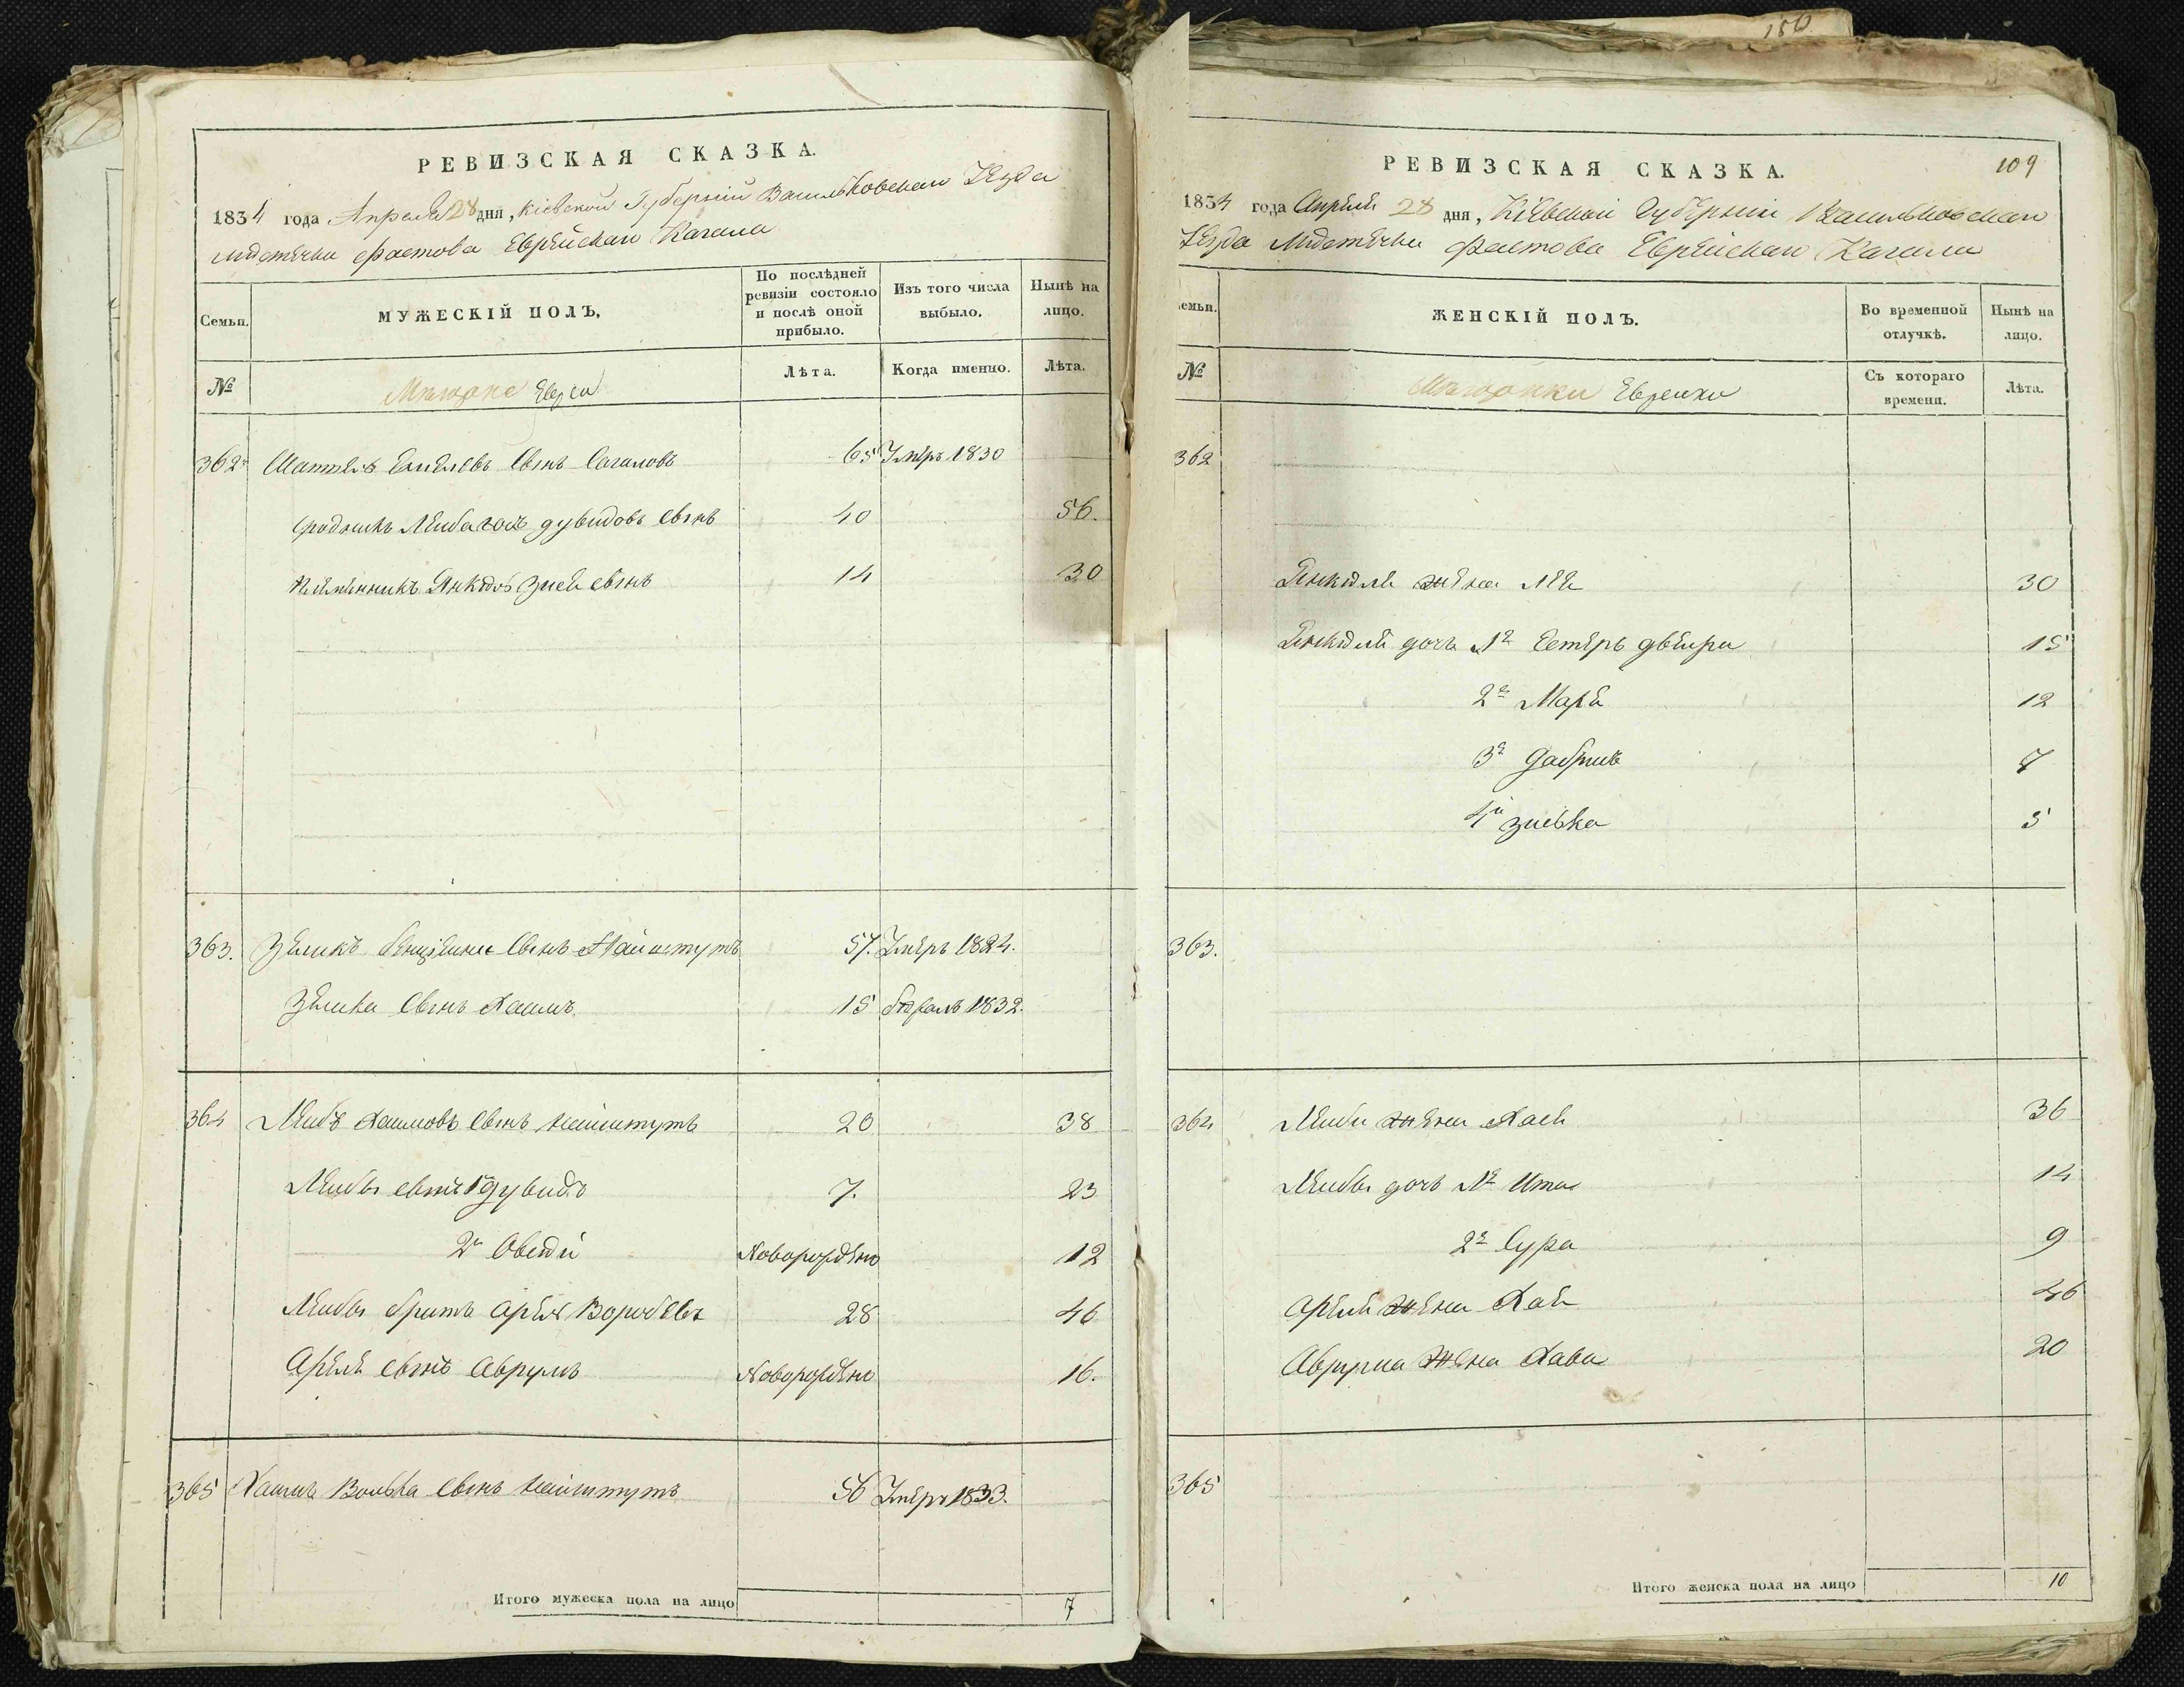 186
РЕВИЗСКАЯ СКАЗКА.
1834 года Апреля 28 дня, Кіевской Губерніи Васильковскаго Уезда
Мѣстечка Фастова Еврейскаго Кагала
Семьи.
МУЖЕСКІЙ ПОЛЪ.
По послѣдней ревизіи состояло и послѣ оной прибыло.
Изъ того числа выбыло.
Нынѣ на лицо.
№
Мѣщане Евреи
Лѣта.
Когда именно.
Лѣта.
362 Сынъ 65 Умеръ 1830
Дувидовъ Сынъ 40 56.
племянникъ Янкель Сынъ 14 30
363. Зеликъ Сынъ 57. Умеръ 1824.
Зелика Сынъ Хаимъ 15 1832.
364 Лейба Хаимовъ Сынъ Найштутъ 20 38
Лейбы Сынъ 1й Дувидъ 7. 23
2й Овсей Новорожденъ 12
Лейбы братъ Арель 28 46
Ареля Сынъ Аврумъ Новорожденъ 16.
365 Хаимъ Волька Сынъ Найштутъ 56 Умеръ 1833.
Итого мужеска пола на лицо 7
109
РЕВИЗСКАЯ СКАЗКА.
1834 года Апреля 28 дня, Кіевской Губерніи Васильковскаго
Уезда Мѣстечка Фастова Еврейскаго Кагала
семьи.
ЖЕНСКІЙ ПОЛЪ.
Во временной отлучкѣ.
Нынѣ на лицо.
№
Мѣщанки Еврейки
Съ котораго времени.
Лѣта.
362
Янкеля жена Лея 30
Янкеля дочь 1я Естеръ Двейра 15
2я 12
3я 7
4я Зиевка 5
363.
364 Лейбы жена Хася 36
Лейбы дочь 1я Ита 14
2я Сура 9
Ареля жена Хая 46
Аврума жена Хава 20
365
Итого женска пола на лицо 10